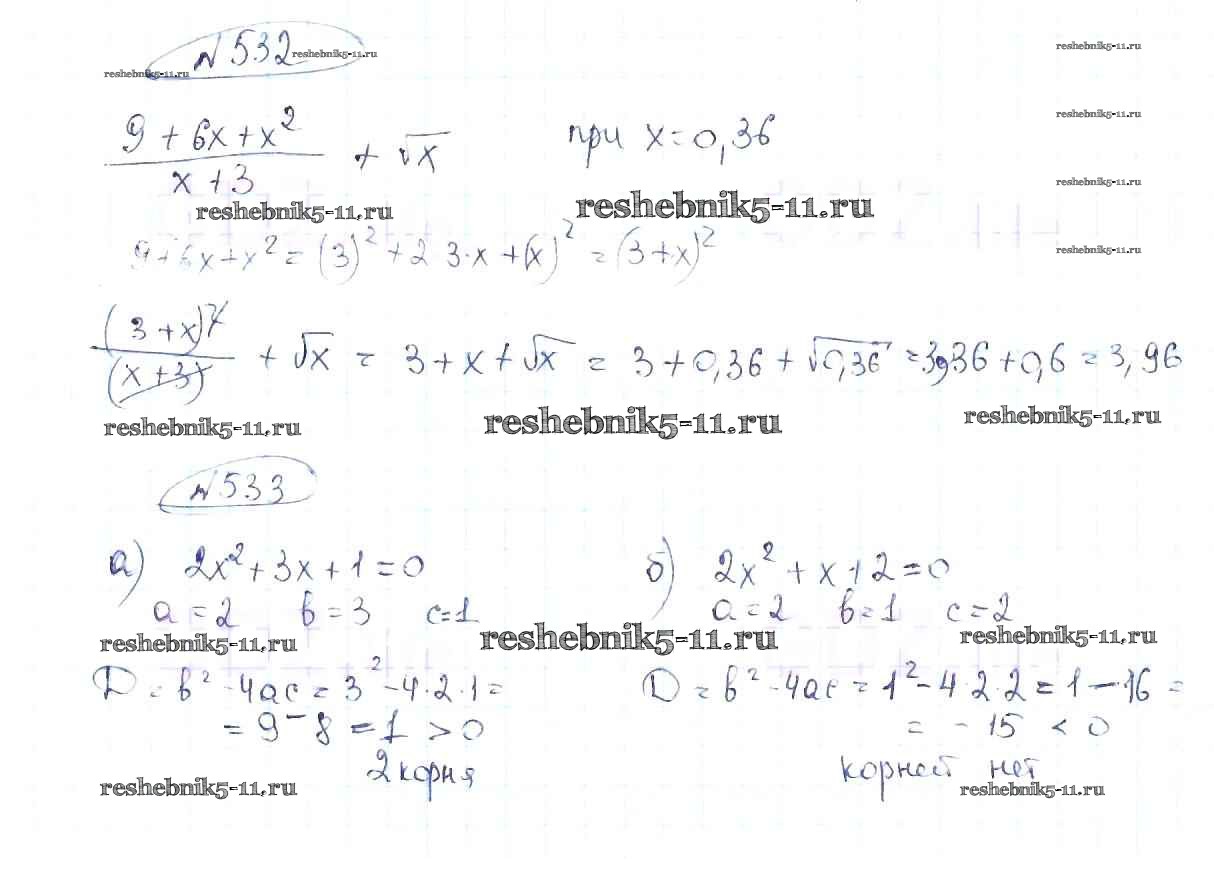 №532
reshebnik5-11.ru
reshebnik5-11.ru
reshebnik5-11.ru
(9 + 6x + x²)/(x + 3) + √x при x = 0,36
reshebnik5-11.ru
reshebnik5-11.ru
reshebnik5-11.ru
reshebnik5-11.ru
9 + 6x + x² = (3)² + 2 3·x + (x)² = (3 + x)²
reshebnik5-11.ru
(3 + x)²/(x + 3) + √x = 3 + x + √x = 3 + 0,36 + √0,36 = 3,36 + 0,6 = 3,96
reshebnik5-11.ru
reshebnik5-11.ru
reshebnik5-11.ru
№533
а) 2x² + 3x + 1 = 0
a = 2 b = 3 c = 1
reshebnik5-11.ru
D = b² - 4ac = 3² - 4·2·1 =
= 9 - 8 = 1 > 0
2 корня
reshebnik5-11.ru
б) 2x² + x + 2 = 0
a = 2 b = 1 c = 2
reshebnik5-11.ru
reshebnik5-11.ru
D = b² - 4ac = 1² - 4·2·2 = 1 - 16 =
= - 15 < 0
корней нет
reshebnik5-11.ru